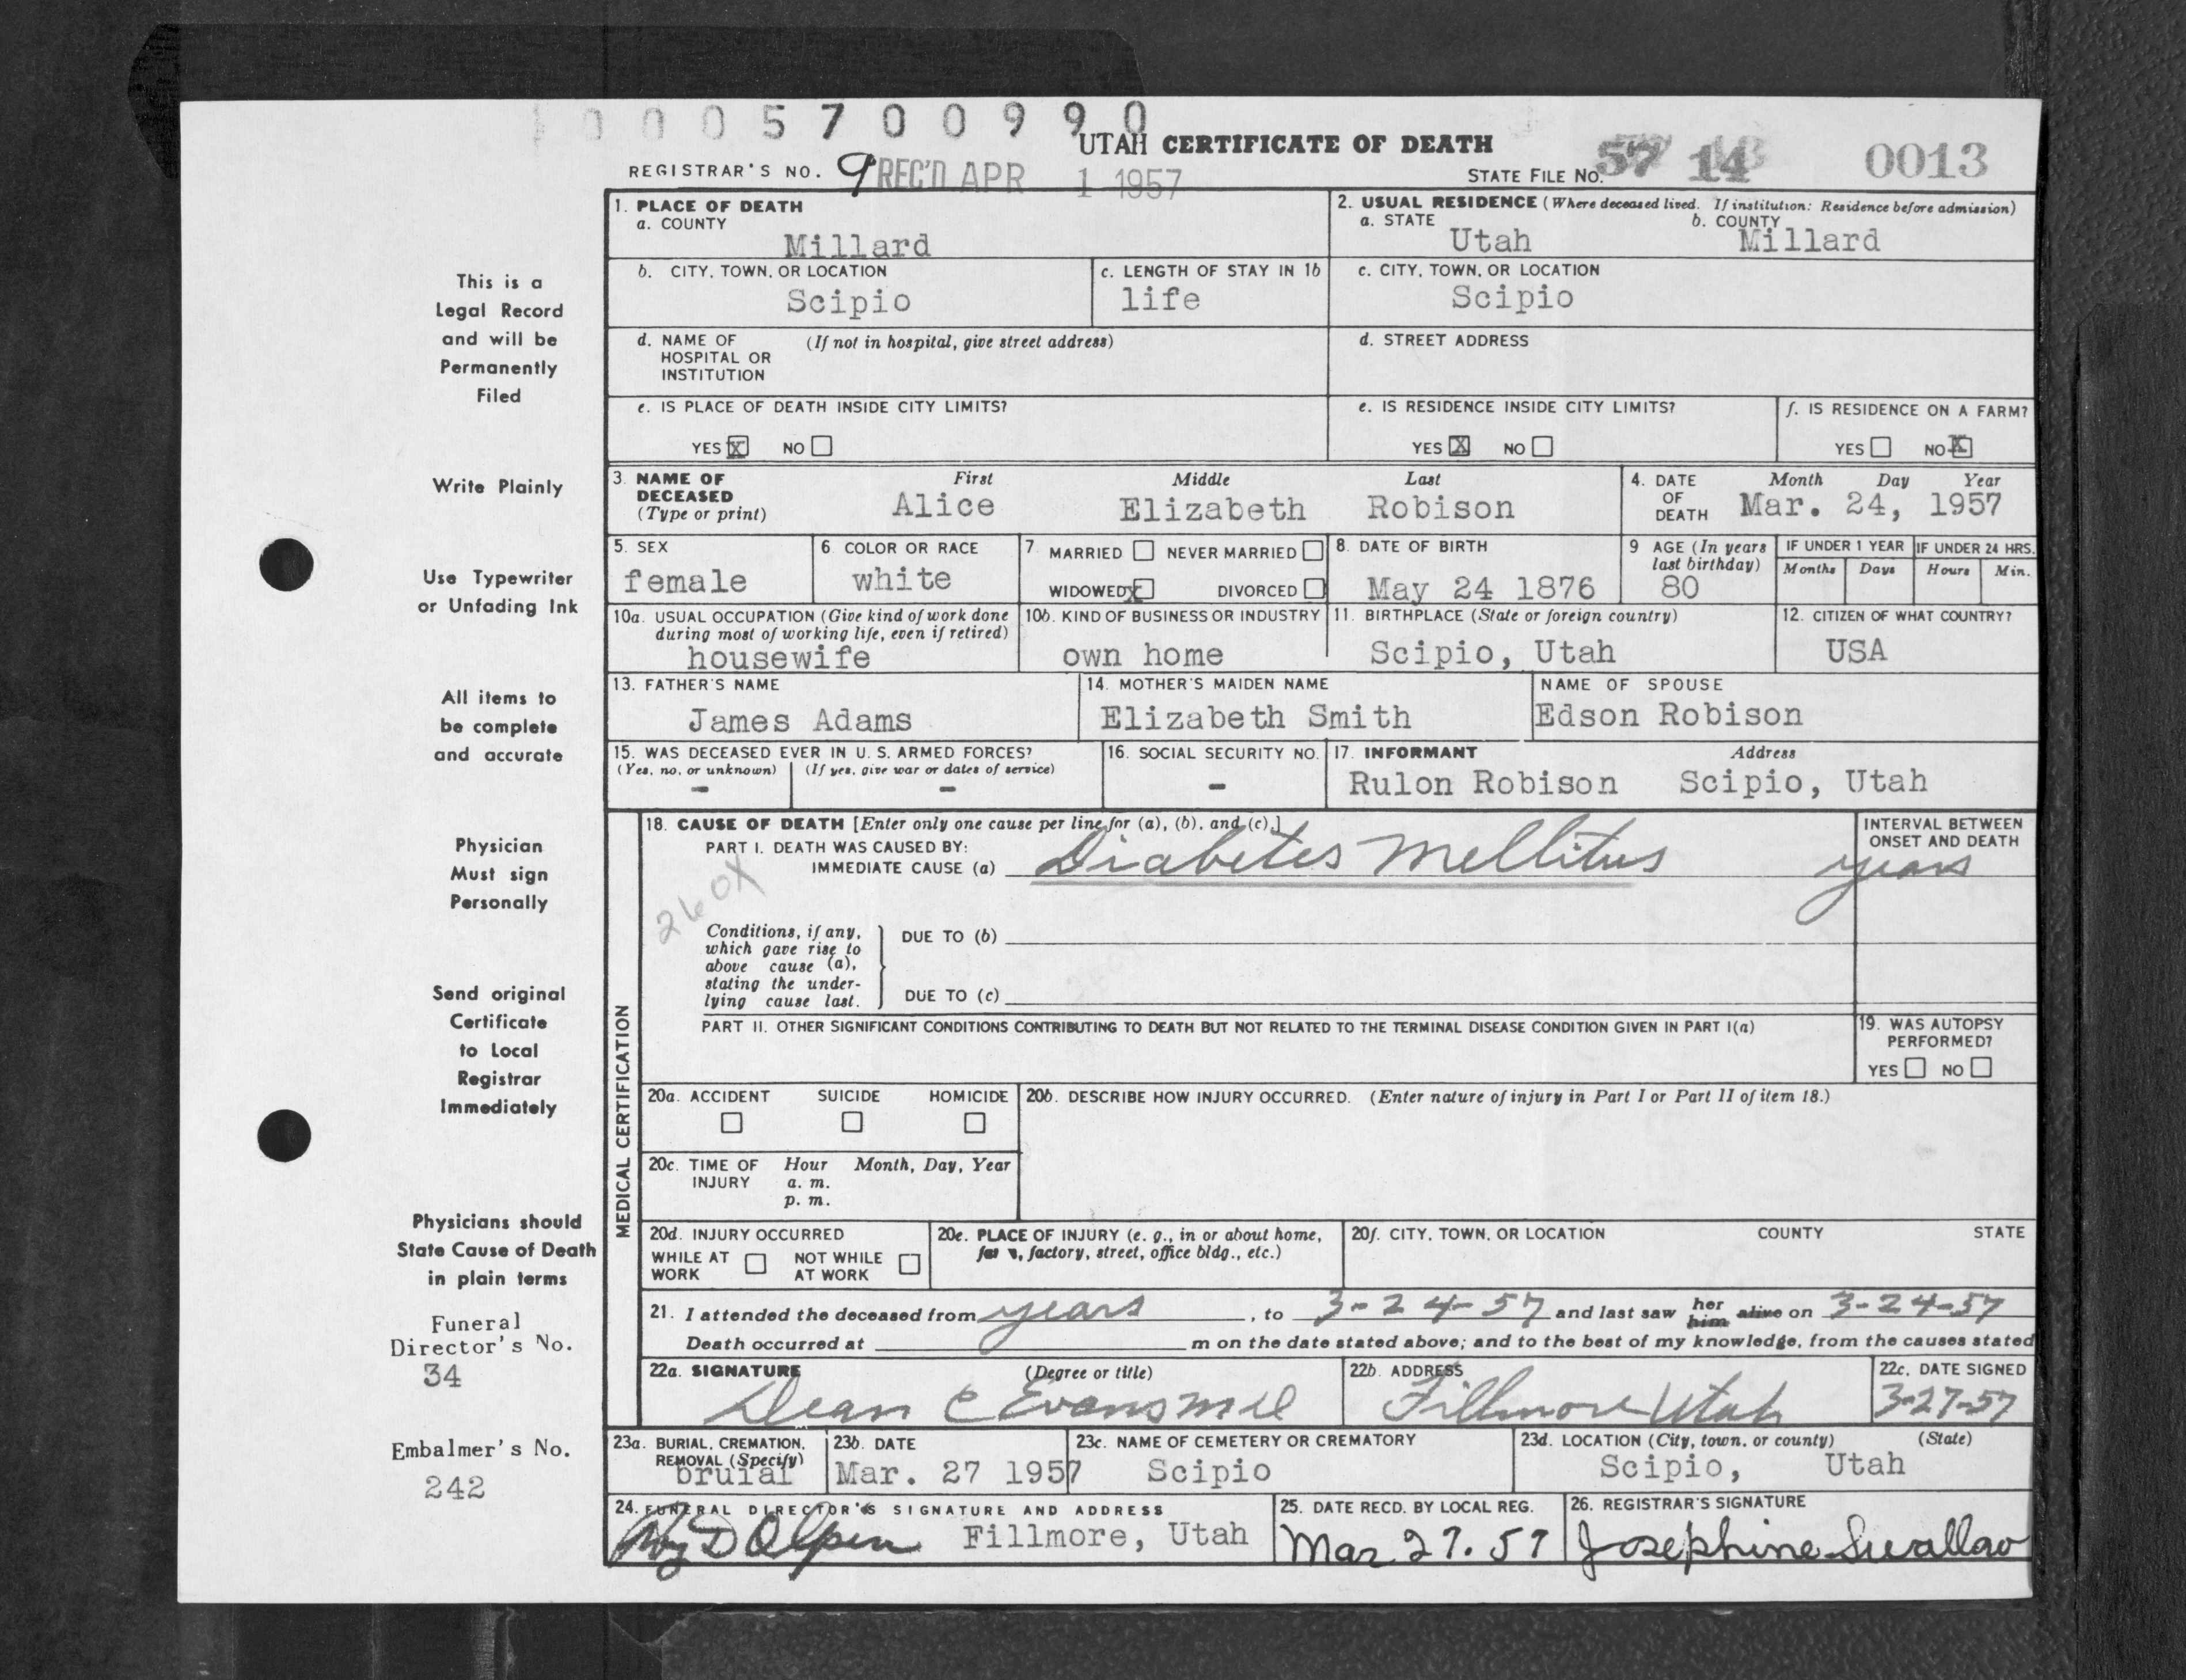 0 0 0 5 7 0 0 9 9 0
UTAH CERTIFICATE OF DEATH
REGISTRAR'S NO. 9 REC'D APR 1 1957
STATE FILE NO. 57 14 0013
This is a
Legal Record
and will be
Permanently
Filed
Write Plainly
Use Typewriter
or Unfading Ink
All items to
be complete
and accurate
Physician
Must sign
Personally
Send original
Certificate
to Local
Registrar
Immediately
Physicians should
State Cause of Death
in plain terms
Funeral
Director's No.
34
Embalmer's No.
242
1. PLACE OF DEATH
a. COUNTY
Millard
2. USUAL RESIDENCE (Where deceased lived. If institution: Residence before admission)
a. STATE b. COUNTY
Utah Millard
b. CITY, TOWN, OR LOCATION
Scipio
c. LENGTH OF STAY IN 1b
life
c. CITY, TOWN, OR LOCATION
Scipio
d. NAME OF (If not in hospital, give street address)
HOSPITAL OR
INSTITUTION
d. STREET ADDRESS
e. IS PLACE OF DEATH INSIDE CITY LIMITS?
YES X NO
e. IS RESIDENCE INSIDE CITY LIMITS?
YES X NO
f. IS RESIDENCE ON A FARM?
YES NO X
3. NAME OF First Middle Last
DECEASED
(Type or print)
Alice Elizabeth Robison
4. DATE Month Day Year
OF
DEATH
Mar. 24, 1957
5. SEX
female
6. COLOR OR RACE
white
7. MARRIED NEVER MARRIED
WIDOWED X DIVORCED
8. DATE OF BIRTH
May 24 1876
9 AGE (In years
last birthday)
80
IF UNDER 1 YEAR IF UNDER 24 HRS.
Months Days Hours Min.
10a. USUAL OCCUPATION (Give kind of work done
during most of working life, even if retired)
housewife
10b. KIND OF BUSINESS OR INDUSTRY
own home
11. BIRTHPLACE (State or foreign country)
Scipio, Utah
12. CITIZEN OF WHAT COUNTRY?
USA
13. FATHER'S NAME
James Adams
14. MOTHER'S MAIDEN NAME
Elizabeth Smith
NAME OF SPOUSE
Edson Robison
15. WAS DECEASED EVER IN U. S. ARMED FORCES?
(Yes, no, or unknown) (If yes, give war or dates of service)
- -
16. SOCIAL SECURITY NO.
-
17. INFORMANT Address
Rulon Robison Scipio, Utah
MEDICAL CERTIFICATION
18. CAUSE OF DEATH [Enter only one cause per line for (a), (b), and (c).]
PART I. DEATH WAS CAUSED BY:
IMMEDIATE CAUSE (a) Diabetes Mellitus
INTERVAL BETWEEN
ONSET AND DEATH
years
260X
Conditions, if any,
which gave rise to
above cause (a),
stating the under-
lying cause last.
DUE TO (b)
DUE TO (c)
PART II. OTHER SIGNIFICANT CONDITIONS CONTRIBUTING TO DEATH BUT NOT RELATED TO THE TERMINAL DISEASE CONDITION GIVEN IN PART I(a)
19. WAS AUTOPSY
PERFORMED?
YES NO
20a. ACCIDENT SUICIDE HOMICIDE
20b. DESCRIBE HOW INJURY OCCURRED. (Enter nature of injury in Part I or Part II of item 18.)
20c. TIME OF Hour Month, Day, Year
INJURY a. m.
p. m.
20d. INJURY OCCURRED
WHILE AT NOT WHILE
WORK AT WORK
20e. PLACE OF INJURY (e. g., in or about home,
farm, factory, street, office bldg., etc.)
20f. CITY, TOWN, OR LOCATION COUNTY STATE
21. I attended the deceased from years, to 3-24-57 and last saw her him alive on 3-24-57
Death occurred at m on the date stated above; and to the best of my knowledge, from the causes stated
22a. SIGNATURE (Degree or title)
Dean C Evans MD
22b. ADDRESS
Fillmore Utah
22c. DATE SIGNED
3-27-57
23a. BURIAL, CREMATION,
REMOVAL (Specify)
bruial
23b. DATE
Mar. 27 1957
23c. NAME OF CEMETERY OR CREMATORY
Scipio
23d. LOCATION (City, town, or county) (State)
Scipio, Utah
24. FUNERAL DIRECTOR'S SIGNATURE AND ADDRESS
Olpin Fillmore, Utah
25. DATE RECD. BY LOCAL REG.
Mar 27. 57
26. REGISTRAR'S SIGNATURE
Josephine Swallow